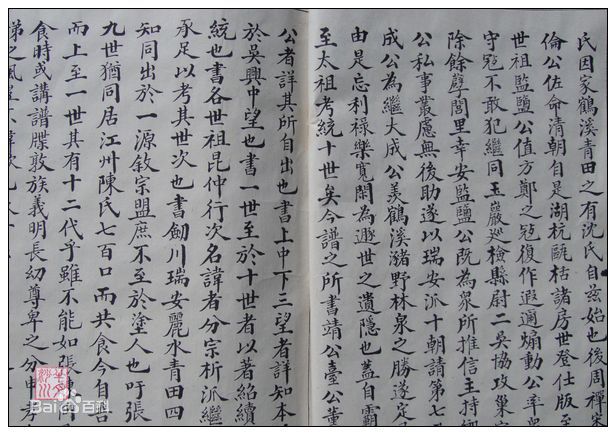 氏因家鶴溪青田之有沈氏自兹始也後周禪宋
倫公佐命清朝自是湖杭甌枯諸房世登仕版至
世祖監鹽公值方鄭之冦復作遐邇煽動公率眾
守冦不敢犯繼同王巖巡檢縣尉二吳協攻巢穴
除餘孽閭里幸安監鹽公既為眾所推信主持鄉
公私事叢慮無後助遂以瑞安派十朝請第七
成公為繼大成公美鶴溪潴野林泉之勝遂定居
由是忘利祿樂寬閑為遯世之遺隱也蓋自霸
至太祖考統十世矣今譜之所書靖公臺公董
公者詳其所自出也書上中下三望者詳知本
於吳興中望也書一世至於十世者以著紹續
統也書各世祖昆仲行次名諱者分宗析派繼
承足以考其世次也書劍川瑞安麗水青田四
知同出於一源敘宗盟庶不至於塗人也吁張
九世猶同居江州陳氏七百口而共食今自吾
而上至一世其有十二代乎雖不能如張陳
食時或講譜牒敦族義明長幼尊卑之分
Baidu百科